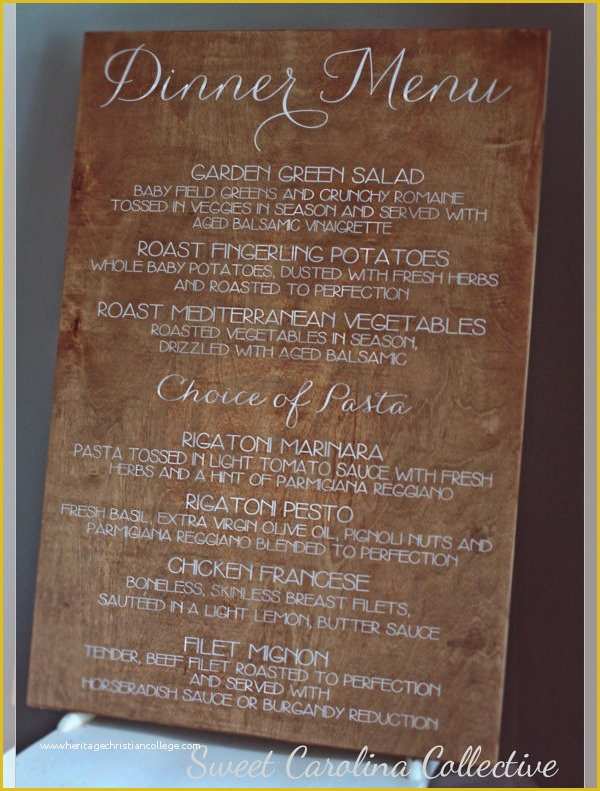 Dinner Menu
GARDEN GREEN SALAD
BABY FIELD GREENS AND CRUNCHY ROMAINE
TOSSED IN VEGGIES IN SEASON AND SERVED WITH
AGED BALSAMIC VINAIGRETTE
ROAST FINGERLING POTATOES
WHOLE BABY POTATOES, DUSTED WITH FRESH HERBS
AND ROASTED TO PERFECTION
ROAST MEDITERRANEAN VEGETABLES
ROASTED VEGETABLES IN SEASON,
DRIZZLED WITH AGED BALSAMIC
Choice of Pasta
RIGATONI MARINARA
PASTA TOSSED IN LIGHT TOMATO SAUCE WITH FRESH
HERBS AND A HINT OF PARMIGIANA REGGIANO
RIGATONI PESTO
FRESH BASIL, EXTRA VIRGIN OLIVE OIL, PIGNOLI NUTS AND
PARMIGIANA REGGIANO BLENDED TO PERFECTION
CHICKEN FRANCESE
BONELESS, SKINLESS BREAST FILETS,
SAUTÉED IN A LIGHT LEMON, BUTTER SAUCE
FILET MIGNON
TENDER, BEEF FILET ROASTED TO PERFECTION
AND SERVED WITH
HORSERADISH SAUCE OR BURGANDY REDUCTION
www.heritagechristiancollege.com
Sweet Carolina Collective